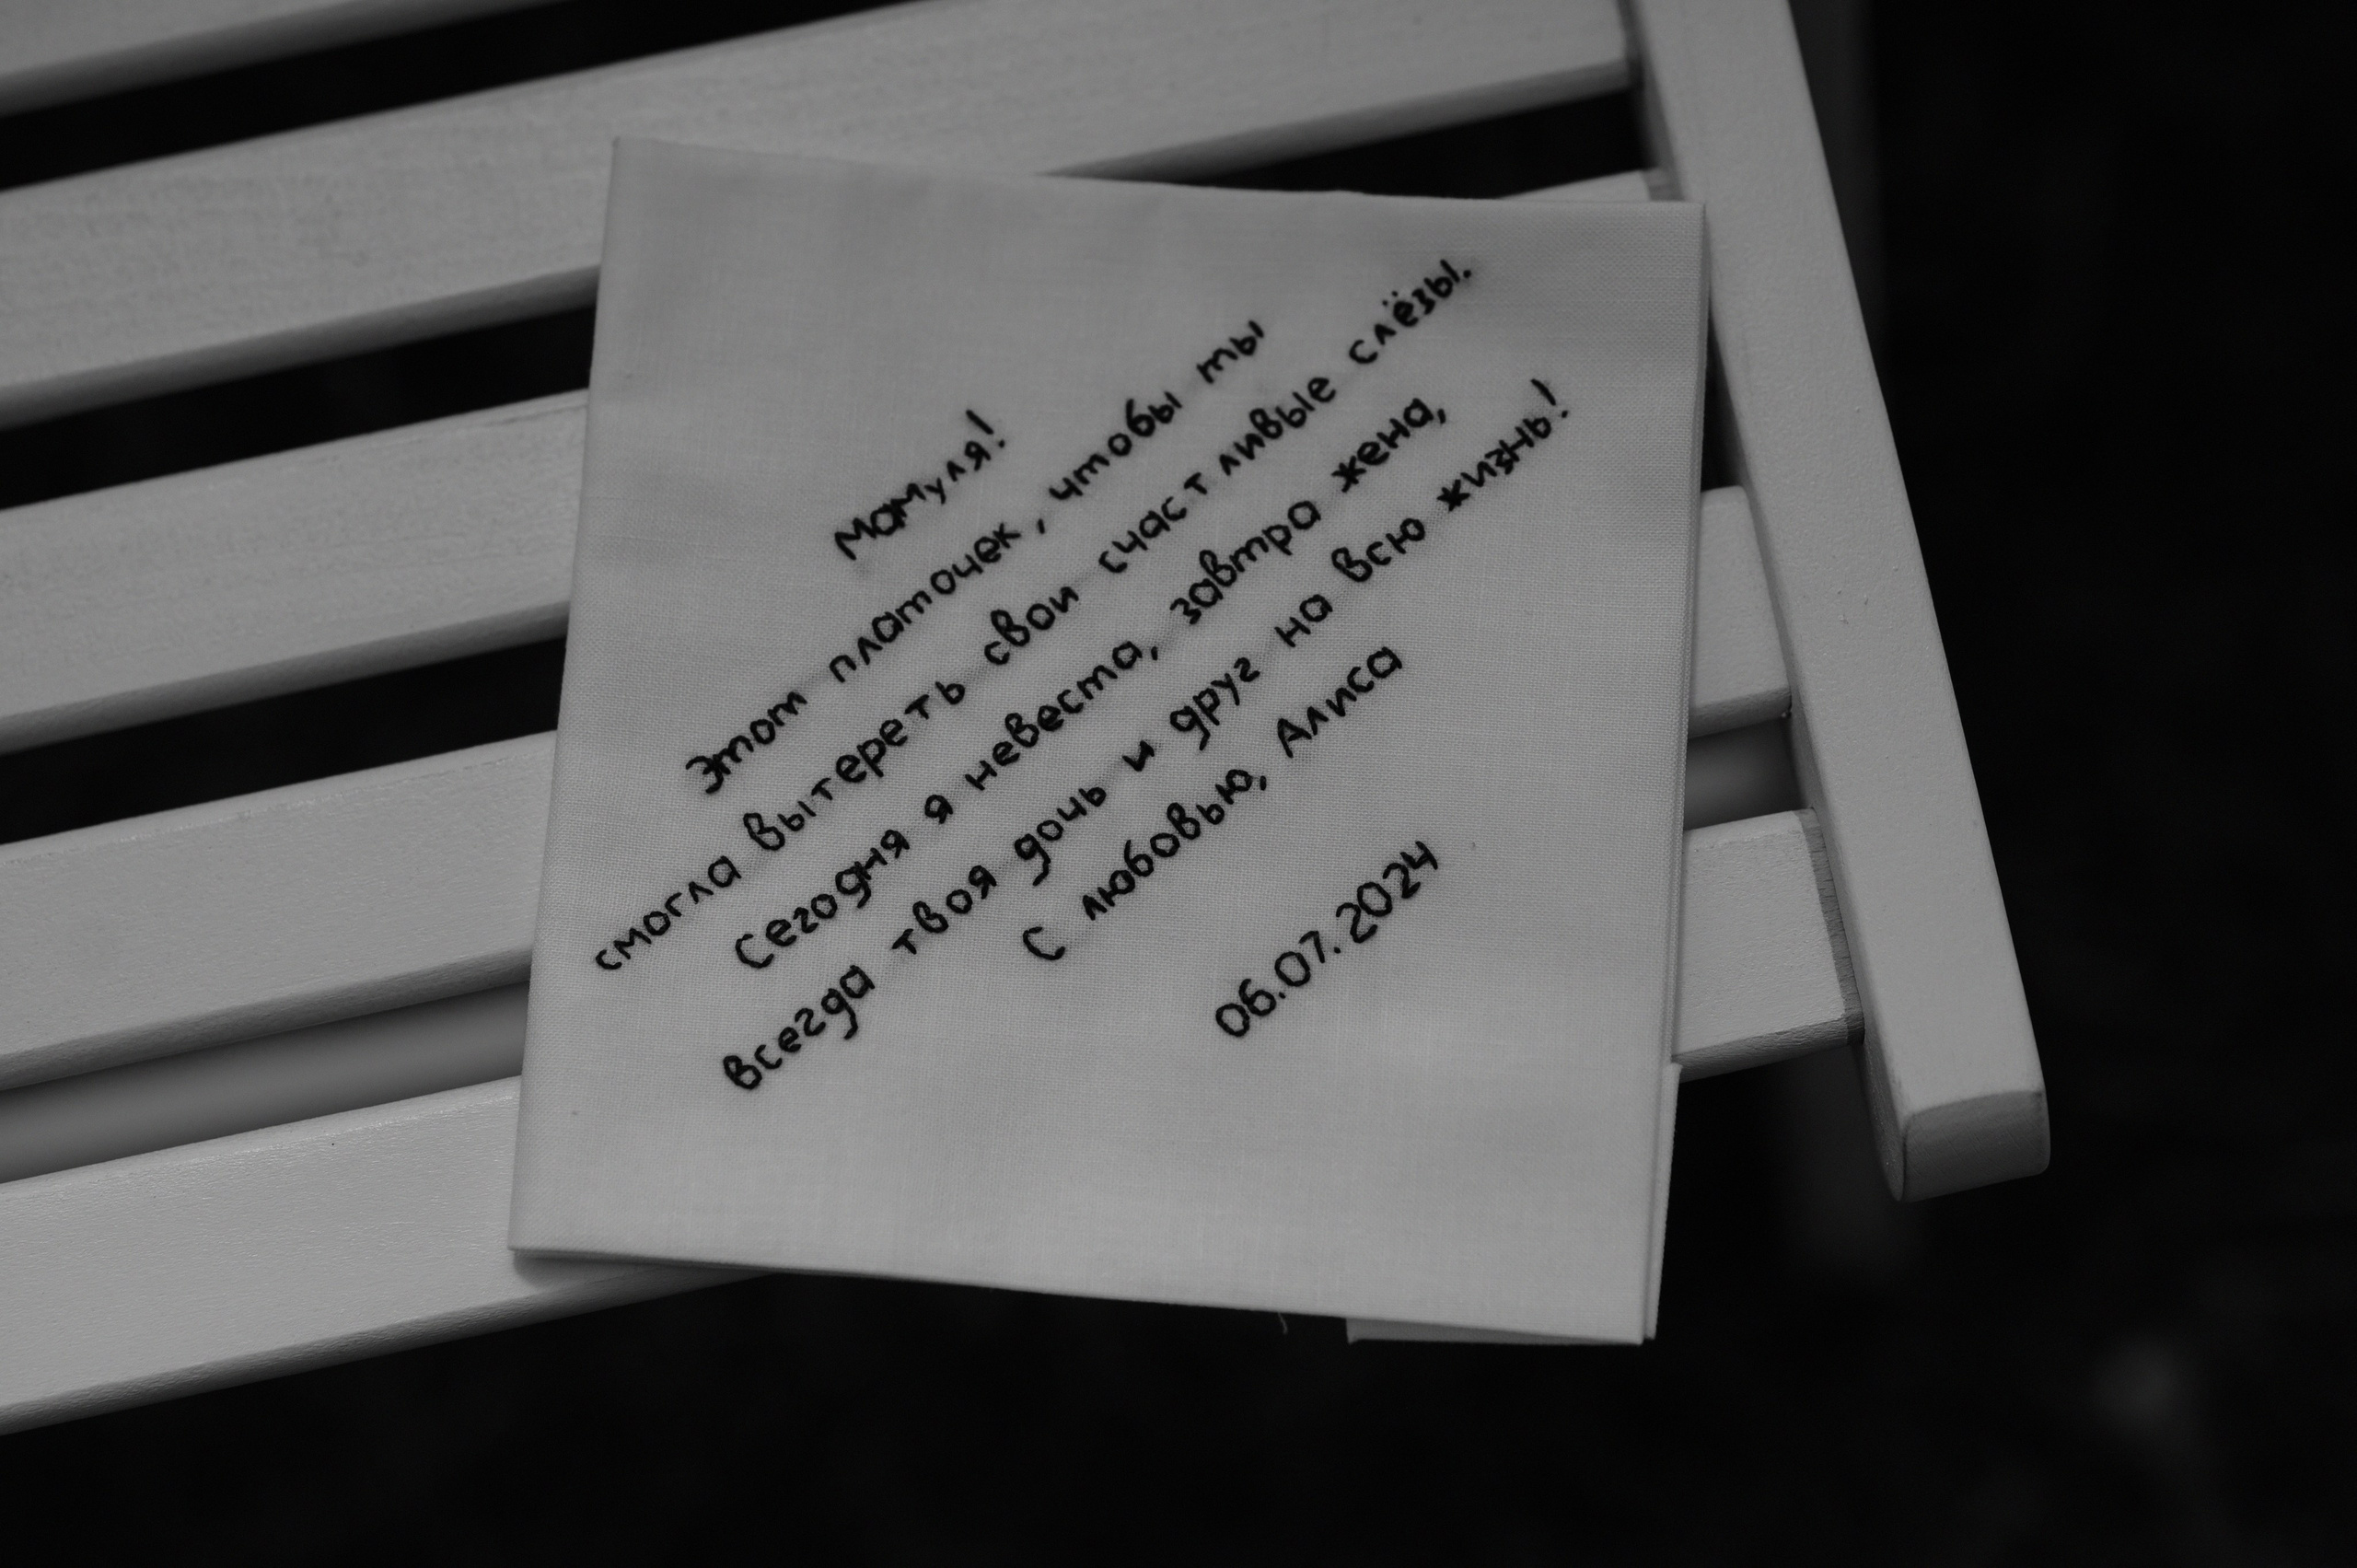 Мамуля!
Этот платочек, чтобы ты
смогла вытереть свои счастливые слёзы.
Сегодня я невеста, завтра жена,
всегда твоя дочь и друг на всю жизнь!
С любовью, Алиса
06.07.2024